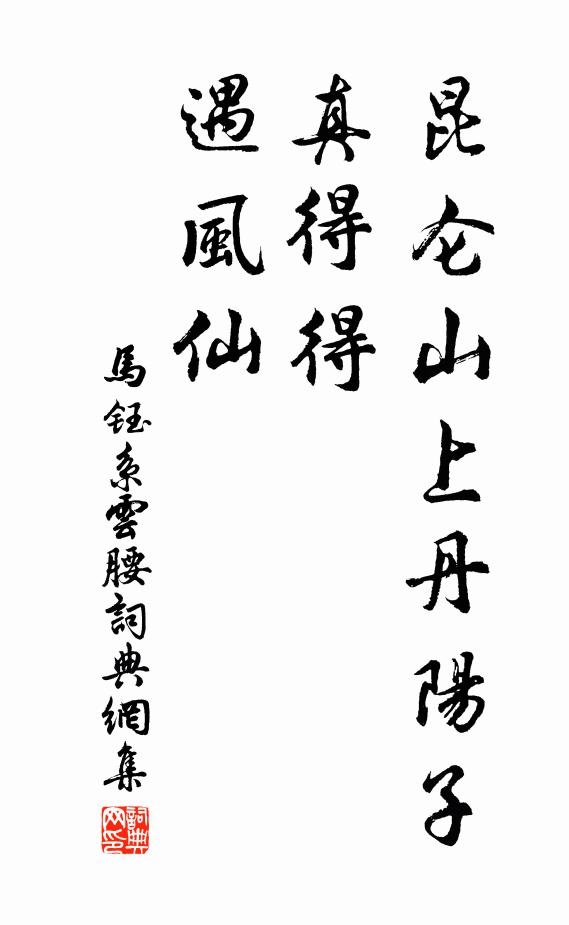 昆仑山上丹陽子
真得得
遇風仙
馬鈺系雲腰詞典網集
詞典网印